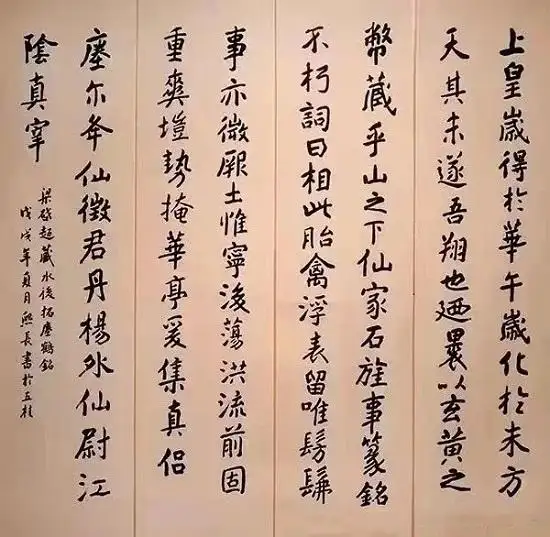 上皇歲得於華午歲化於未方
天其未遂吾翔也迺裹以玄黃之
幣藏乎山之下仙家石旌事篆銘
不朽詞曰相此胎禽浮表留唯髣髴
事亦微厥土惟寧後蕩洪流前固
重爽塏勢掩華亭爰集真侶
瘞尔夅仙徵君丹楊外仙尉江
陰真宰
梁啓超藏水後拓瘞鶴銘
戊戌年真月熙長書於五桂